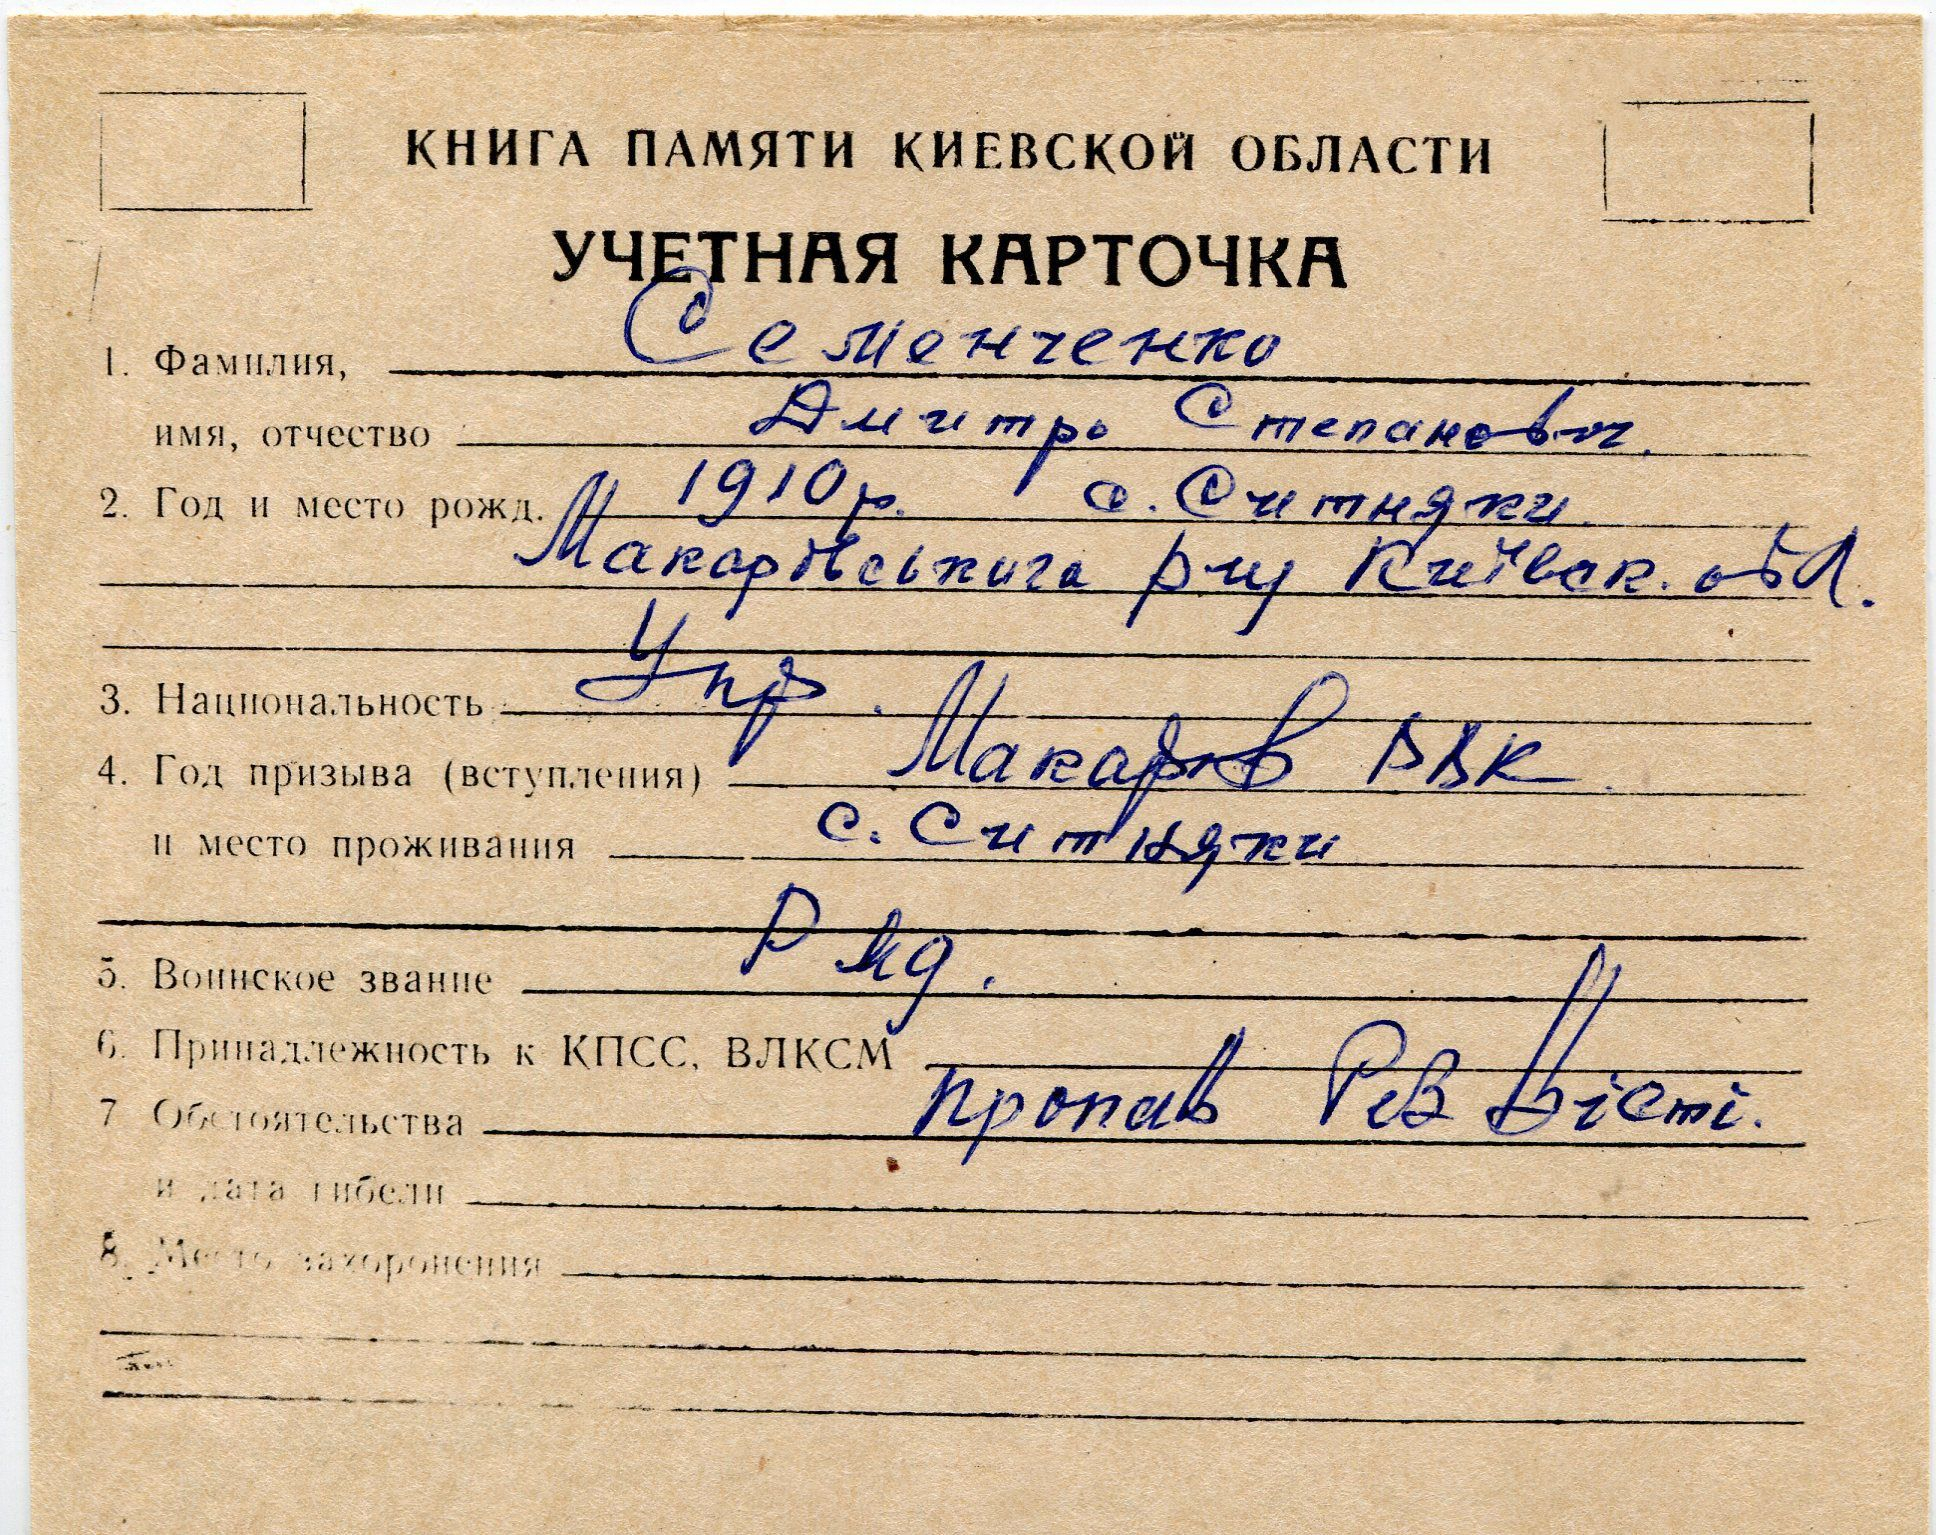 КНИГА ПАМЯТИ КИЕВСКОЙ ОБЛАСТИ
УЧЕТНАЯ КАРТОЧКА
1. Фамилия, Семенченко
имя, отчество Дмитро Степанович.
2. Год и место рожд. 1910 р. с. Ситняки
Макарівського р-ну Київск. обл.
3. Национальность Укр.
4. Год призыва (вступления) Макарів РВК
и место проживания с. Ситняки
5. Воинское звание Ряд.
6. Принадлежность к КПСС, ВЛКСМ
7 Обстоятельства пропав без вісті.
и дата гибели
8. Место захоронения